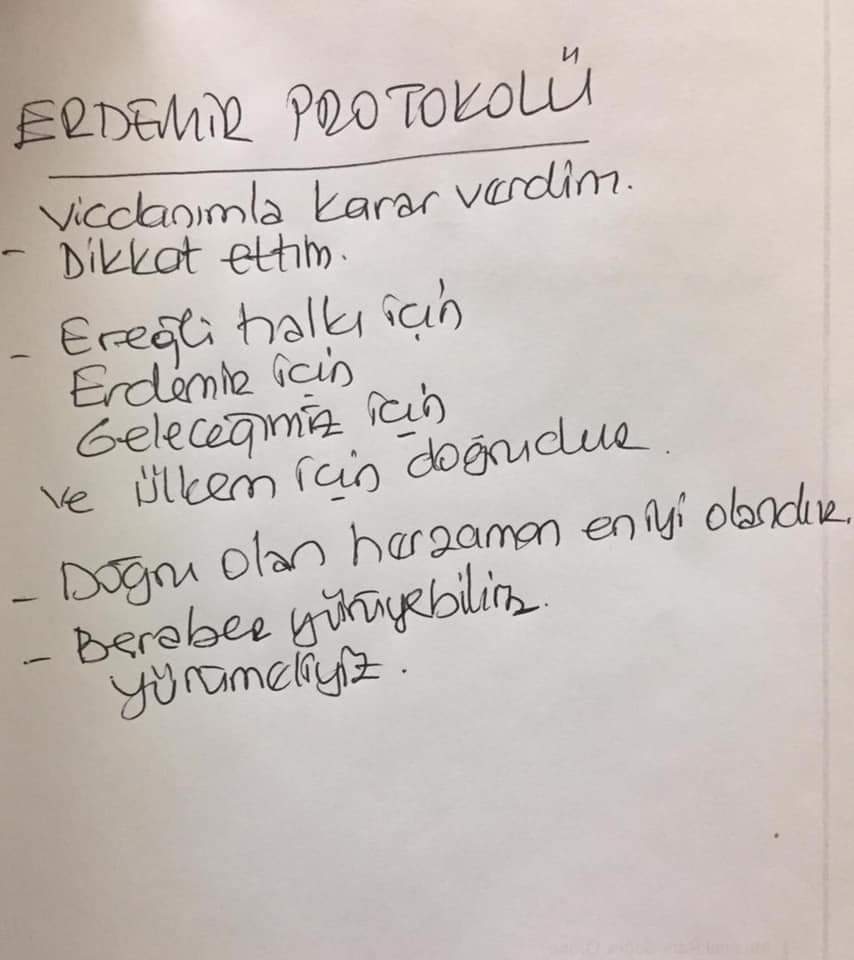 ERDEMİR PROTOKOLÜ
Vicdanımla karar verdim.
- Dikkat ettim.
- Ereğli halkı için
Erdemir için
Geleceğimiz için
ve ülkem için doğrudur.
- Doğru olan herzaman en iyi olandır.
- Beraber yürüyebiliriz.
yürümeliyiz.